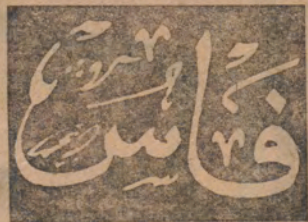 فَاسُ